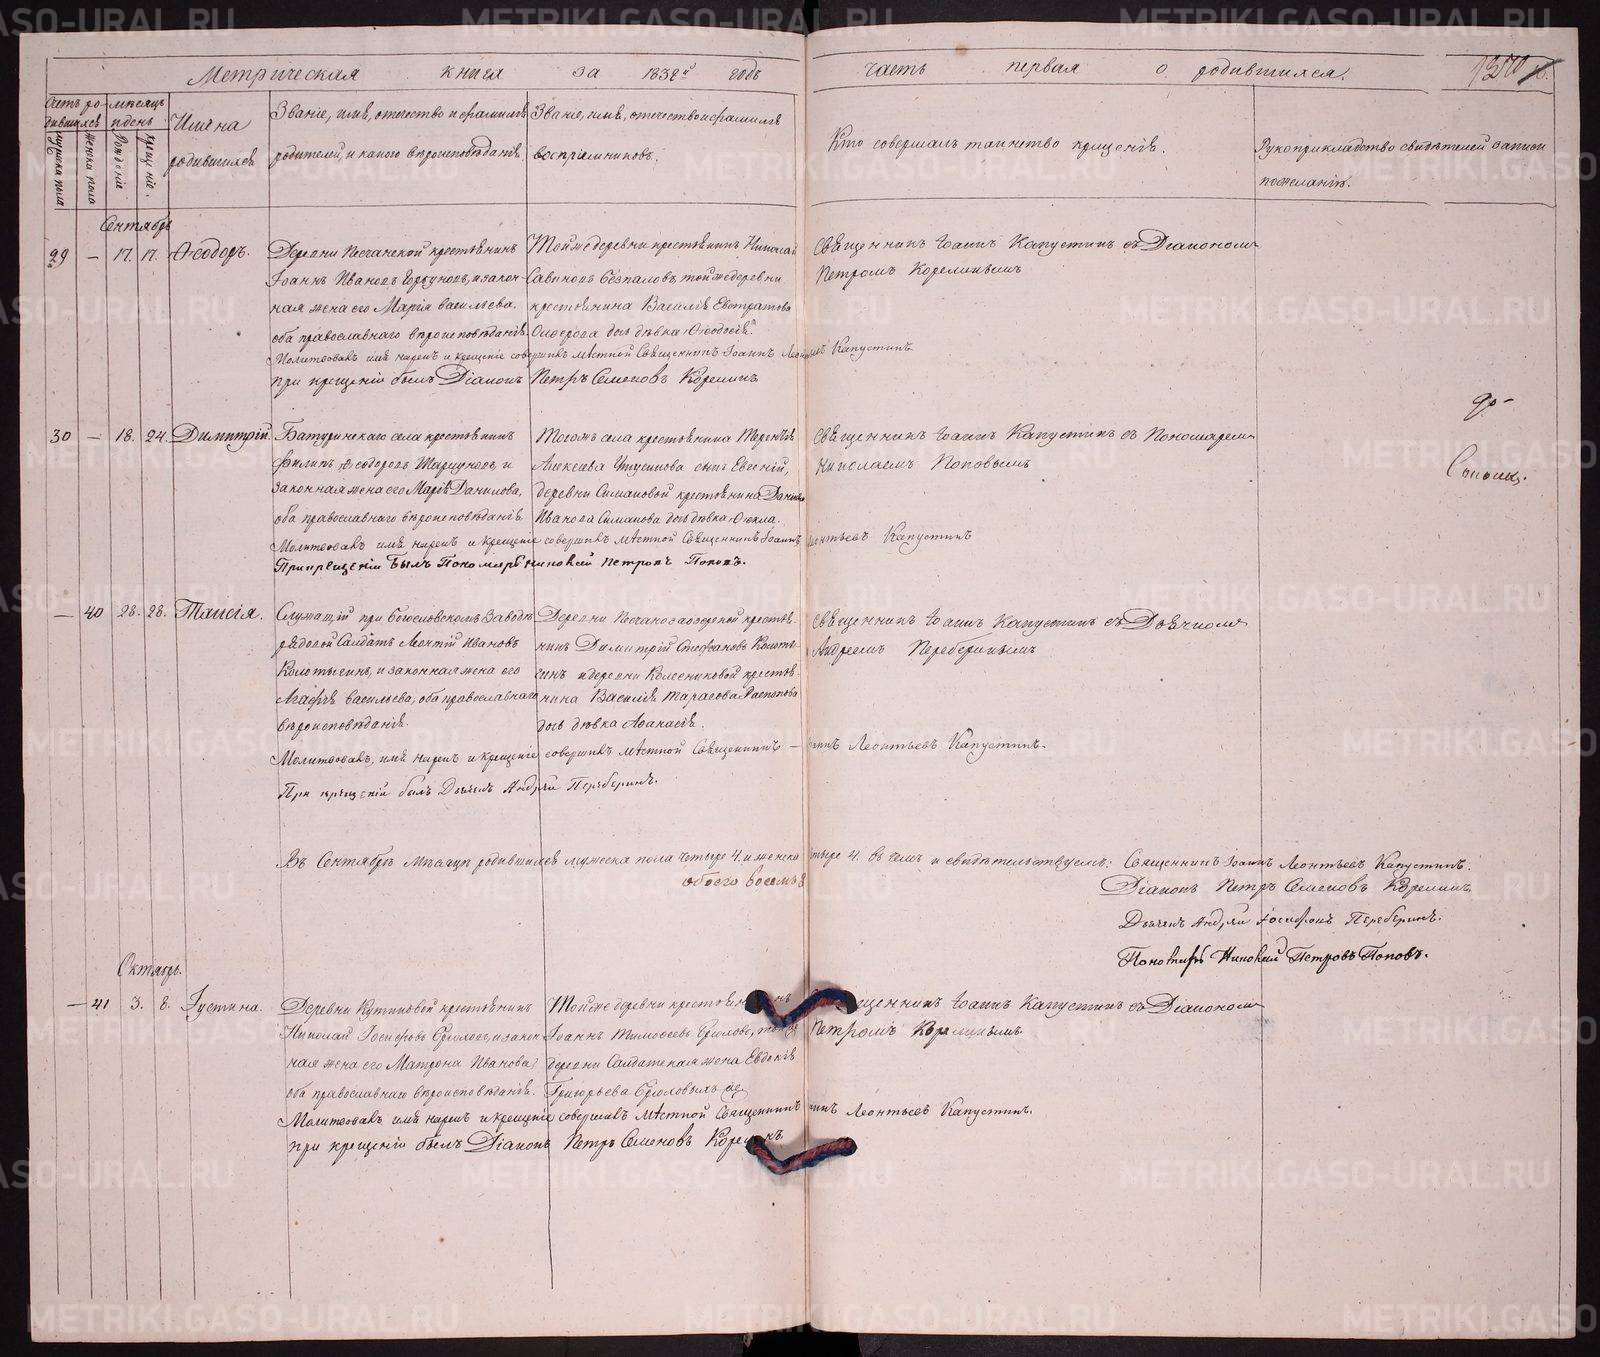 Метрическая книга за 1838й годъ
часть первая о родившихся.
Счетъ ро-
дившихся
мѣсяцъ
и день
мужеска пола
женска пола
Рожденіе
Крещеніе.
Имяна
родившихся
Званіе, имя, отчество и фамилія
родителей, и какого вѣроисповѣданія
Званіе, имя, отчество и фамилія
воспріемниковъ.
Кто совершалъ таинство крещенія.
Рукоприкладство свидѣтелей записи
по желанію.
Сентябрь
29 – 17. 17. Ѳеодоръ.
Деревни Песчанской крестьянинъ
Іоаннъ Ивановъ, и закон-
ная жена его Марія Васильева.
оба православнаго вѣроисповѣданія.
Той же деревни крестьянинъ Николай
Савиновъ Безпаловъ, той же деревни
крестьянина Василія Евстратова
дочь дѣвка Ѳеодосія.
Священникъ Іоаннъ Капустинъ съ Діакономъ
Петромъ Корелинымъ
Молитвовалъ имя нарекъ и крещеніе совершилъ мѣстной Священникъ Іоаннъ Капустинъ.
при крещеніи былъ Діаконъ Петръ Семеновъ Корелинъ
30 – 18. 24. Димитрій.
Батуринскаго села крестьянинъ
Филипъ Ѳеодоровъ и
законная жена его Марія Данилова,
оба православнаго вѣроисповѣданія
Тогожъ села крестьянина Терентія
Алексѣева сынъ Евгеній,
деревни Симановой крестьянина
Иванова Симанова дочь дѣвка Ѳекла.
Священникъ Іоаннъ Капустинъ съ Пономаремъ
Николаемъ Поповымъ
Молитвовалъ имя нарекъ и крещеніе совершилъ мѣстной Священникъ Іоаннъ Леонтьевъ Капустинъ
При крещеніи былъ Пономарь Николай Петровъ Поповъ.
– 40 28. 28. Таисія.
Служащій при Богословскомъ Заводѣ
рядовой Солдатъ Леонтій Ивановъ
Колотыгинъ, и законная жена его
Марія Васильева, оба православнаго
вѣроисповѣданія.
Деревни Песчанозаозерской крестья-
нинъ Димитрій Стефановъ Колоты-
гинъ и деревни Колесниковой крестья-
нина Василія Тарасова Распопова
дочь дѣвка Аѳанасія.
Священникъ Іоаннъ Капустинъ съ Дьячкомъ
Андреемъ Переберинымъ
Молитвовалъ, имя нарекъ и крещеніе совершилъ мѣстной Священникъ Леонтьевъ Капустинъ.
При крещеніи былъ Дьячекъ Андрей Переберинъ.
Въ Сентябрѣ мѣсяцѣ родившихся мужеска пола четыре 4. и женска четыре 4. въ чемъ и свидѣтельствуемъ: Священникъ Іоаннъ Леонтьевъ Капустинъ.
обоего восемь 8
Діаконъ Петръ Семеновъ Корелинъ
Дьячекъ Андрей Іосифовъ Переберинъ.
Пономарь Николай Петровъ Поповъ.
Октябрь.
– 41 3. 8. Іустина.
Деревни крестьянинъ
Николай Іосифовъ и закон-
ная жена его Матрона Иванова,
оба православнаго вѣроисповѣданія.
Той же деревни крестьянинъ
Іоаннъ Тимоѳеевъ той же
деревни Солдатская жена Евдокія
Григорьева
Священникъ Іоаннъ Капустинъ съ Діакономъ
Петромъ Корелинымъ
Молитвовалъ имя нарекъ и крещеніе совершилъ мѣстной Священникъ Леонтьевъ Капустинъ.
при крещеніи былъ Діаконъ Петръ Семеновъ Корелинъ.
METRIKI.GASO-URAL.RU